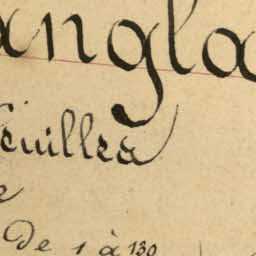 angla
Feuilles
e
De 1 à 130